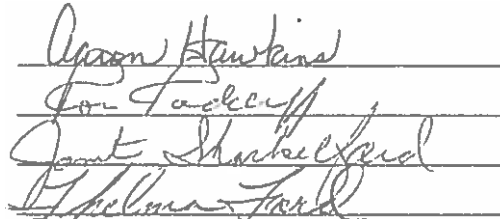 Aaron Hawkins
Tom
Janet Shackelford
Thelma Ford